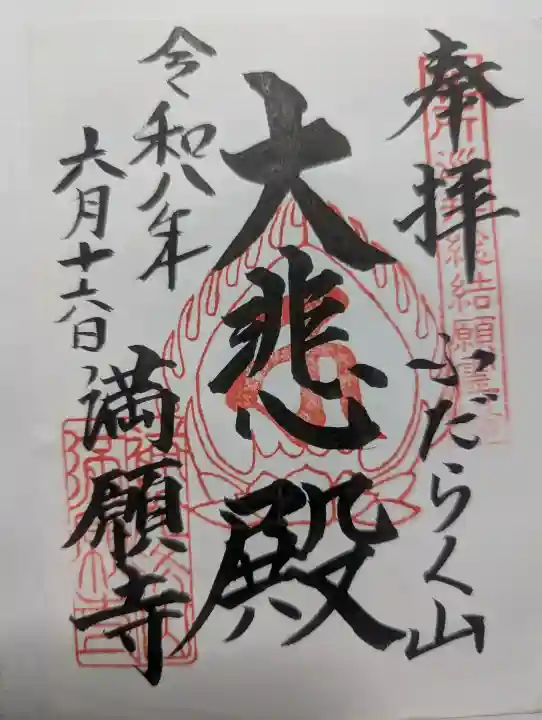 奉拝
ふだらく山
大悲殿
令和八年
六月十六日
満願寺